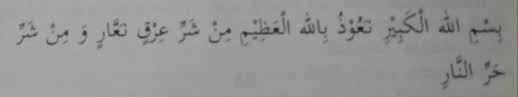 بِسْمِ الله الْكَبِيْرِ نَعُوْذُ بِالله الْعَظِيْمِ مِنْ شَرِّ عِرْقٍ نَعَّارٍ وَ مِنْ شَرِّ
حَرِّ النَّارِ